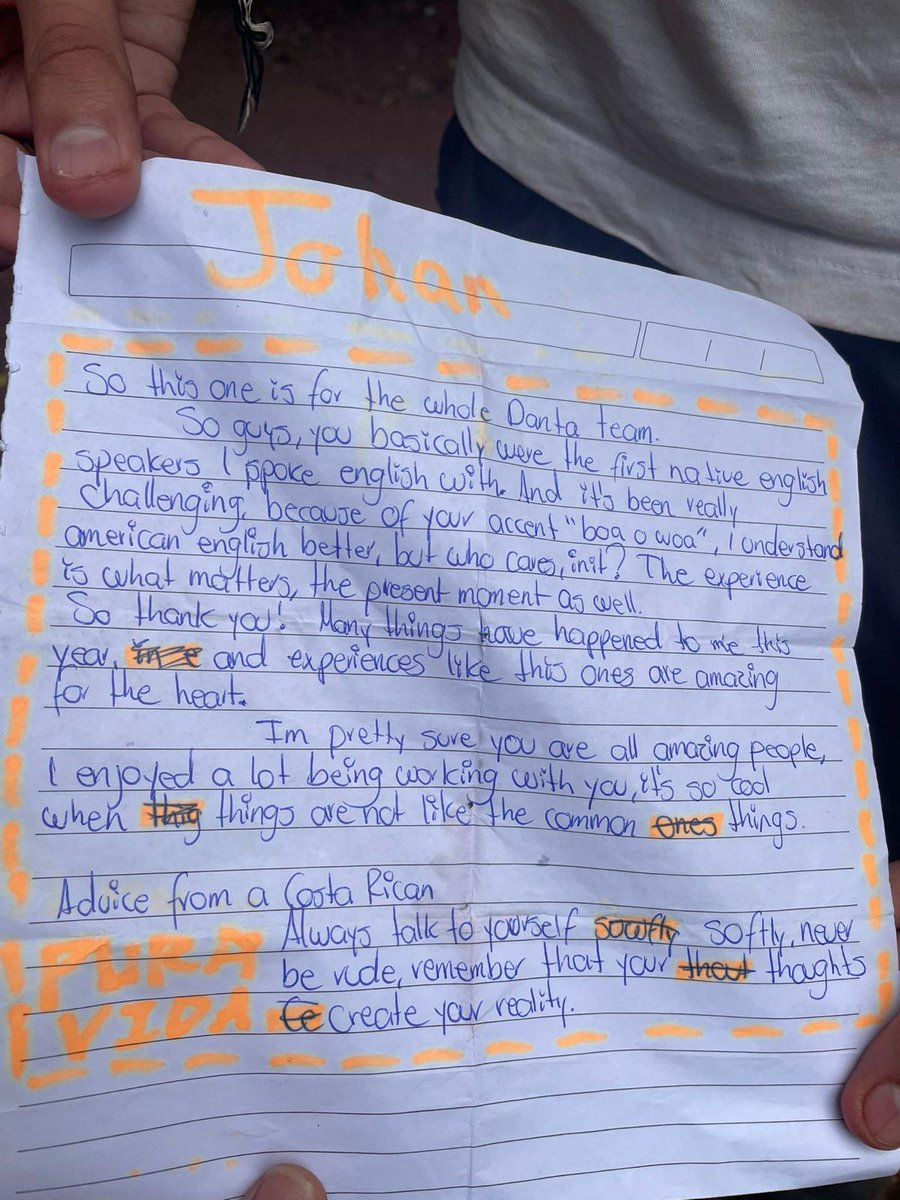 Johan
So this one is for the whole Danta team.
So guys, you basically were the first native english
speakers I spoke english with. And it's been really
challenging, because of your accent "boa o woa", I understand
american english better, but who cares, init? The experience
is what matters, the present moment as well.
So thank you! Many things have happened to me this
year, and experiences like this ones are amazing
for the heart.
Im pretty sure you are all amazing people,
I enjoyed a lot being working with you, it's so cool
when thig things are not like the common ones things.
Advice from a Costa Rican
Always talk to yourself sowftly softly, never
be rude, remember that your thout thoughts
Ce create your reality.
PURA
VIDA